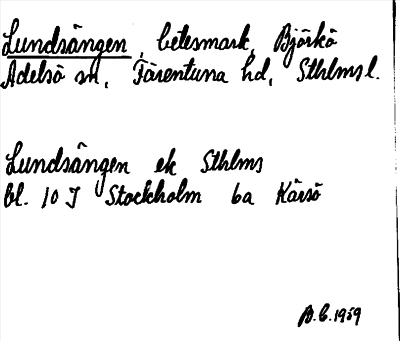 Lundsängen, betesmark, Björkö
Adelsö sn, Färentuna hd, Sthlms l.
Lundsängen ek Sthlms
bl. 10 I Stockholm ba Kärsö
B.C. 1959